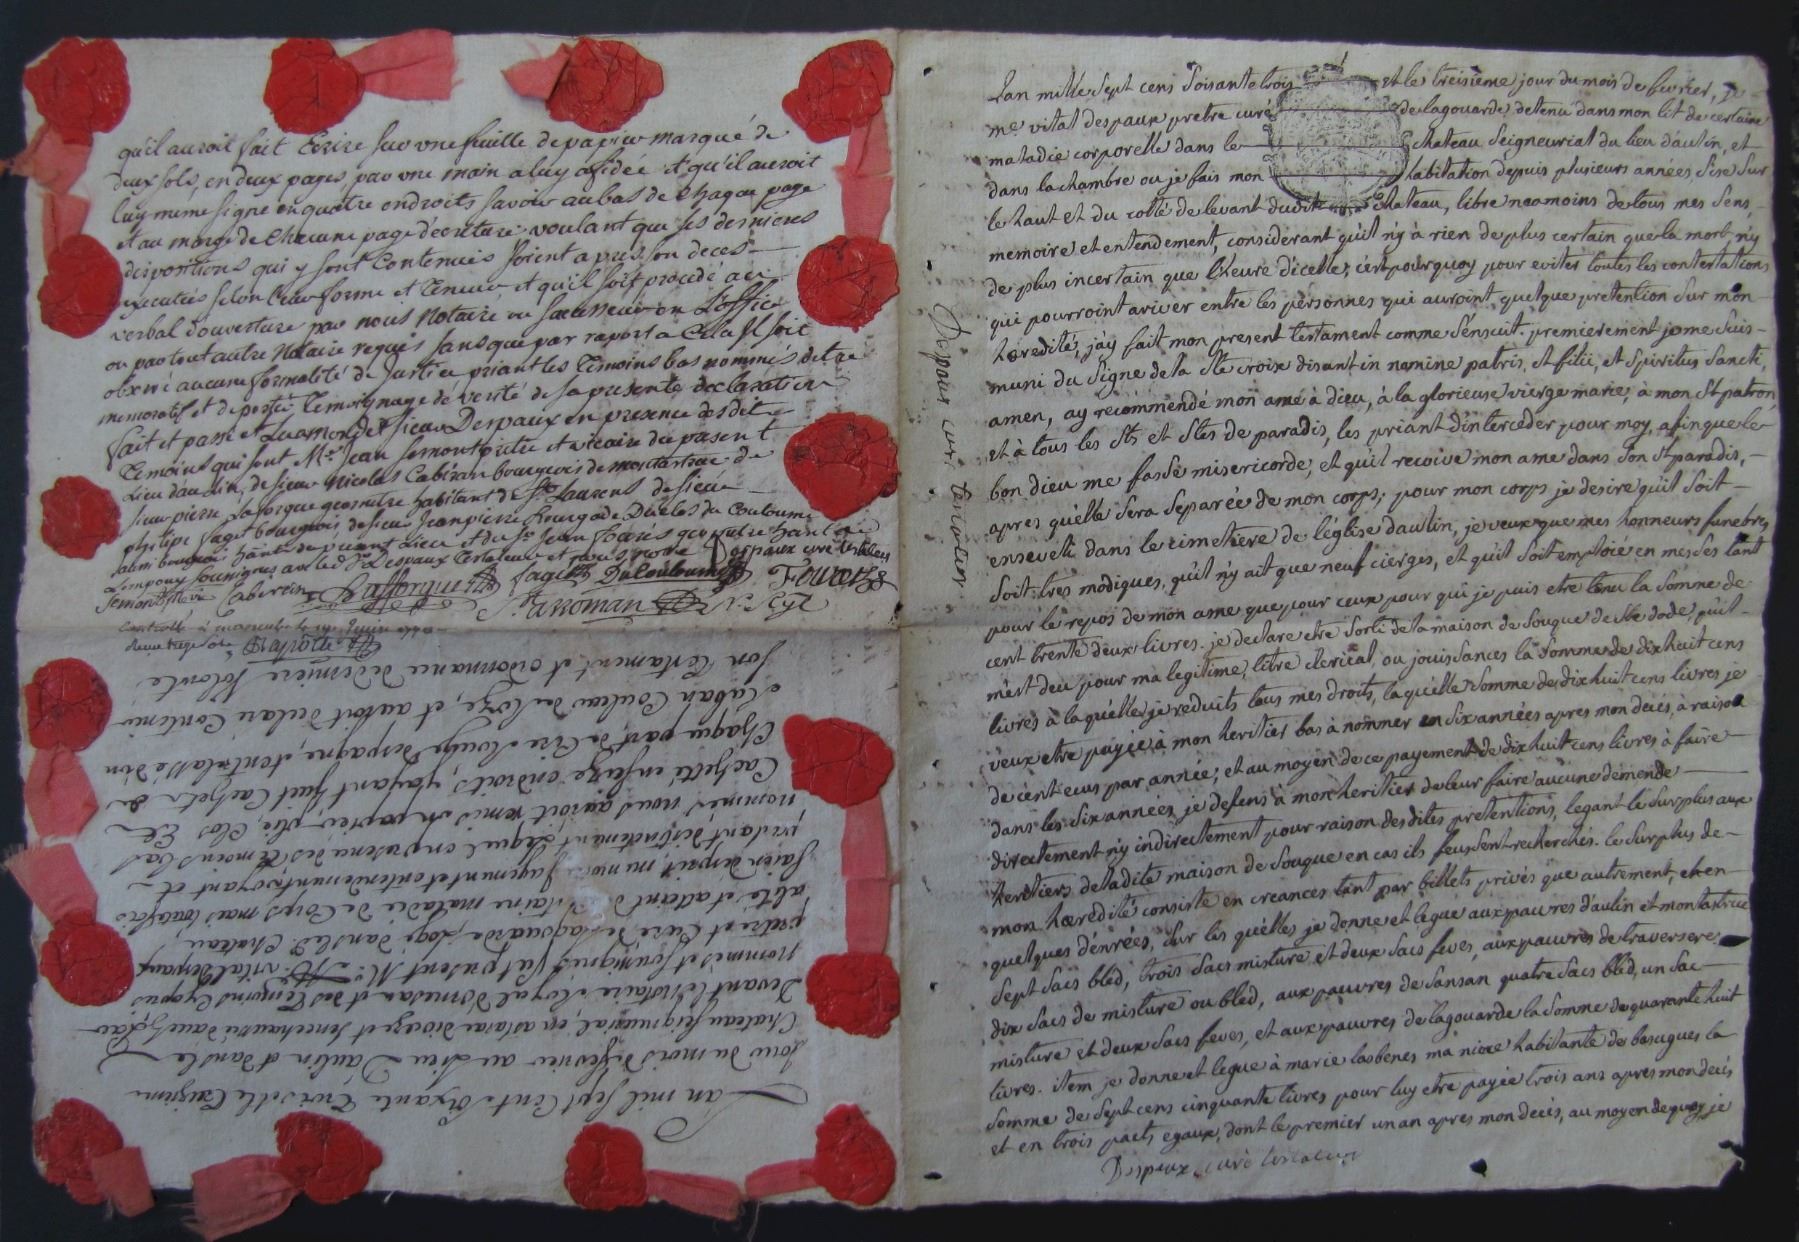 qu'il auroit fait Ecrire sur une feuille de papier marqué de
deux sols, en deux pages, par une main a luy afidée et qu'il auroit
luy meme signé en quatre endroits savoir au bas de chaque page
et au marge de chacune page d'écriture voulant que ses dernieres
dispositions qui y sont Contenues soient apres son deces
executées selon leur forme et teneur et qu'il soit procedé au
verbal d'ouverture par nous Notaire ou successeur en L'office
ou par tout autre Notaire requis sans que par raport a Cela Il soit
observé aucune formalité de Justice priant les Temoins bas nommés detre
memoratifs et de porter Temoignage de verité de sa presente declaration
fait et passé et sieur Despaux en presence desdits
Temoins qui sont Mr Jean pretre et vicaire du present
Lieu d'aulin, de sieur Nicolas Cabiran bourgeois de montastruc de
sieur pierre Laforgue habitant de St Laurens de sieur
philipe Sage bourgeois de sieur Jean pierre Duclos du Couloume
Despaux curé testateur
Cabiran Ducouloume
L'an mil sept Cent soixante Trois et le Treizieme
Jour du mois de fevrier au Lieu D'aulin et dans le
Chateau seigneurial, en astarac dioceze et senechaussée d'auch, par
Devant le Notaire Royal et des Temoins bas
nommés et soussignés fut present Me vital despaux
pretre et Curé de Lagouarde, Logé dans led. Chateau,
alité et atteint de certaine maladie de Corps mais toutefois
sain d'esprit, memoire Jugement et entendement, voyant et
parlant distinctement Lequel en presence des Temoins bas
nommés, nous auroit remis un papier plié, clos Et
Cacheté en seize endroits, y ayant huit Cachets de
Chaque part de Cire Rouge despagne, et entrelassé d'un
Ruban Couleur de Roze, et auroit declaré Contenir
son Testament et ordonnance de derniere volonté,
Lan mille sept cens soisante trois et le treisieme jour du mois de fevrier, je
me vital despaux pretre curé de lagouarde, detenu dans mon lit de certaine
maladie corporelle dans le chateau seigneurial du lieu d'aulin, et
dans la chambre ou je fais mon habitation depuis plusieurs années, sise sur
le haut et du cotté de levant dudit chateau, libre neamoins de tous mes sens,
memoire et entendement, considerant qu'il n'y à rien de plus certain que la mort, n'y
de plus incertain que l'heure d'icelle, c'est pourquoy pour eviter toutes les contestations
qui pourroint ariver entre les personnes qui auroint quelque pretention sur mon
hœredité, j'ay fait mon present testament comme s'ensuit. premierement je me suis
muni du signe de la Ste croix disant in nomine patris, et filii, et spiritus sancti,
amen, ay recommendé mon ame à dieu, à la glorieuse vierge marie, à mon St patron,
et à tous les Sts et Stes de paradis, les priant d'interceder pour moy, afin que le
bon dieu me fasse misericorde, et qu'il recoive mon ame dans son St paradis,
apres qu'elle sera separée de mon corps; pour mon corps je desire qu'il soit
enseveli dans le cimetiere de l'église d'aulin, je veux que mes honneurs funebres
soit tres modiques, qu'il n'y ait que neuf cierges, et qu'il soit emploié en messes tant
pour le repos de mon ame que pour ceux pour qui je puis etre tenu la somme de
cent trente deux livres. je declare etre sorti de la maison de souque de Ste dode, qu'il
m'est deu pour ma legitime, titre clerical, ou jouissances la somme de dix huit cens
livres à laquelle je reduits tous mes droits, laquelle somme de dix huit cens livres je
veux etre payée à mon heritier bas à nommer en six années apres mon decés, à raison
de cent ecus par année; et au moyen de ce payement de dix huit cens livres à faire
dans les six années, je defens à mon heritier de leur faire aucune demende
directement n'y indirectement pour raison desdites pretentions, legant le surplus aux
heritiers de ladite maison de souque en cas ils feussent recherchés. le surplus de
mon hœredité consiste en creances tant par billets privés que autrement, et en
quelques dénrées, sur les quelles je donne et legue aux pauvres d'aulin et montastruc
sept sacs bled, trois sacs misture et deux sacs feves, aux pauvres de traverseres
dix sacs de misture ou bled, aux pauvres de sansan quatre sacs bled, un sac
misture et deux sacs feves, et aux pauvres de lagouarde la somme de quarante huit
livres. item je donne et legue à marie lasbenes ma niece habitante de basugues la
somme de sept cens cinquante livres pour luy etre payée trois ans apres mon decés
et en trois pacts egaux, dont le premier un an apres mon decés, au moyen de quoy je
Despaux curé testateur
Despaux curé testateur